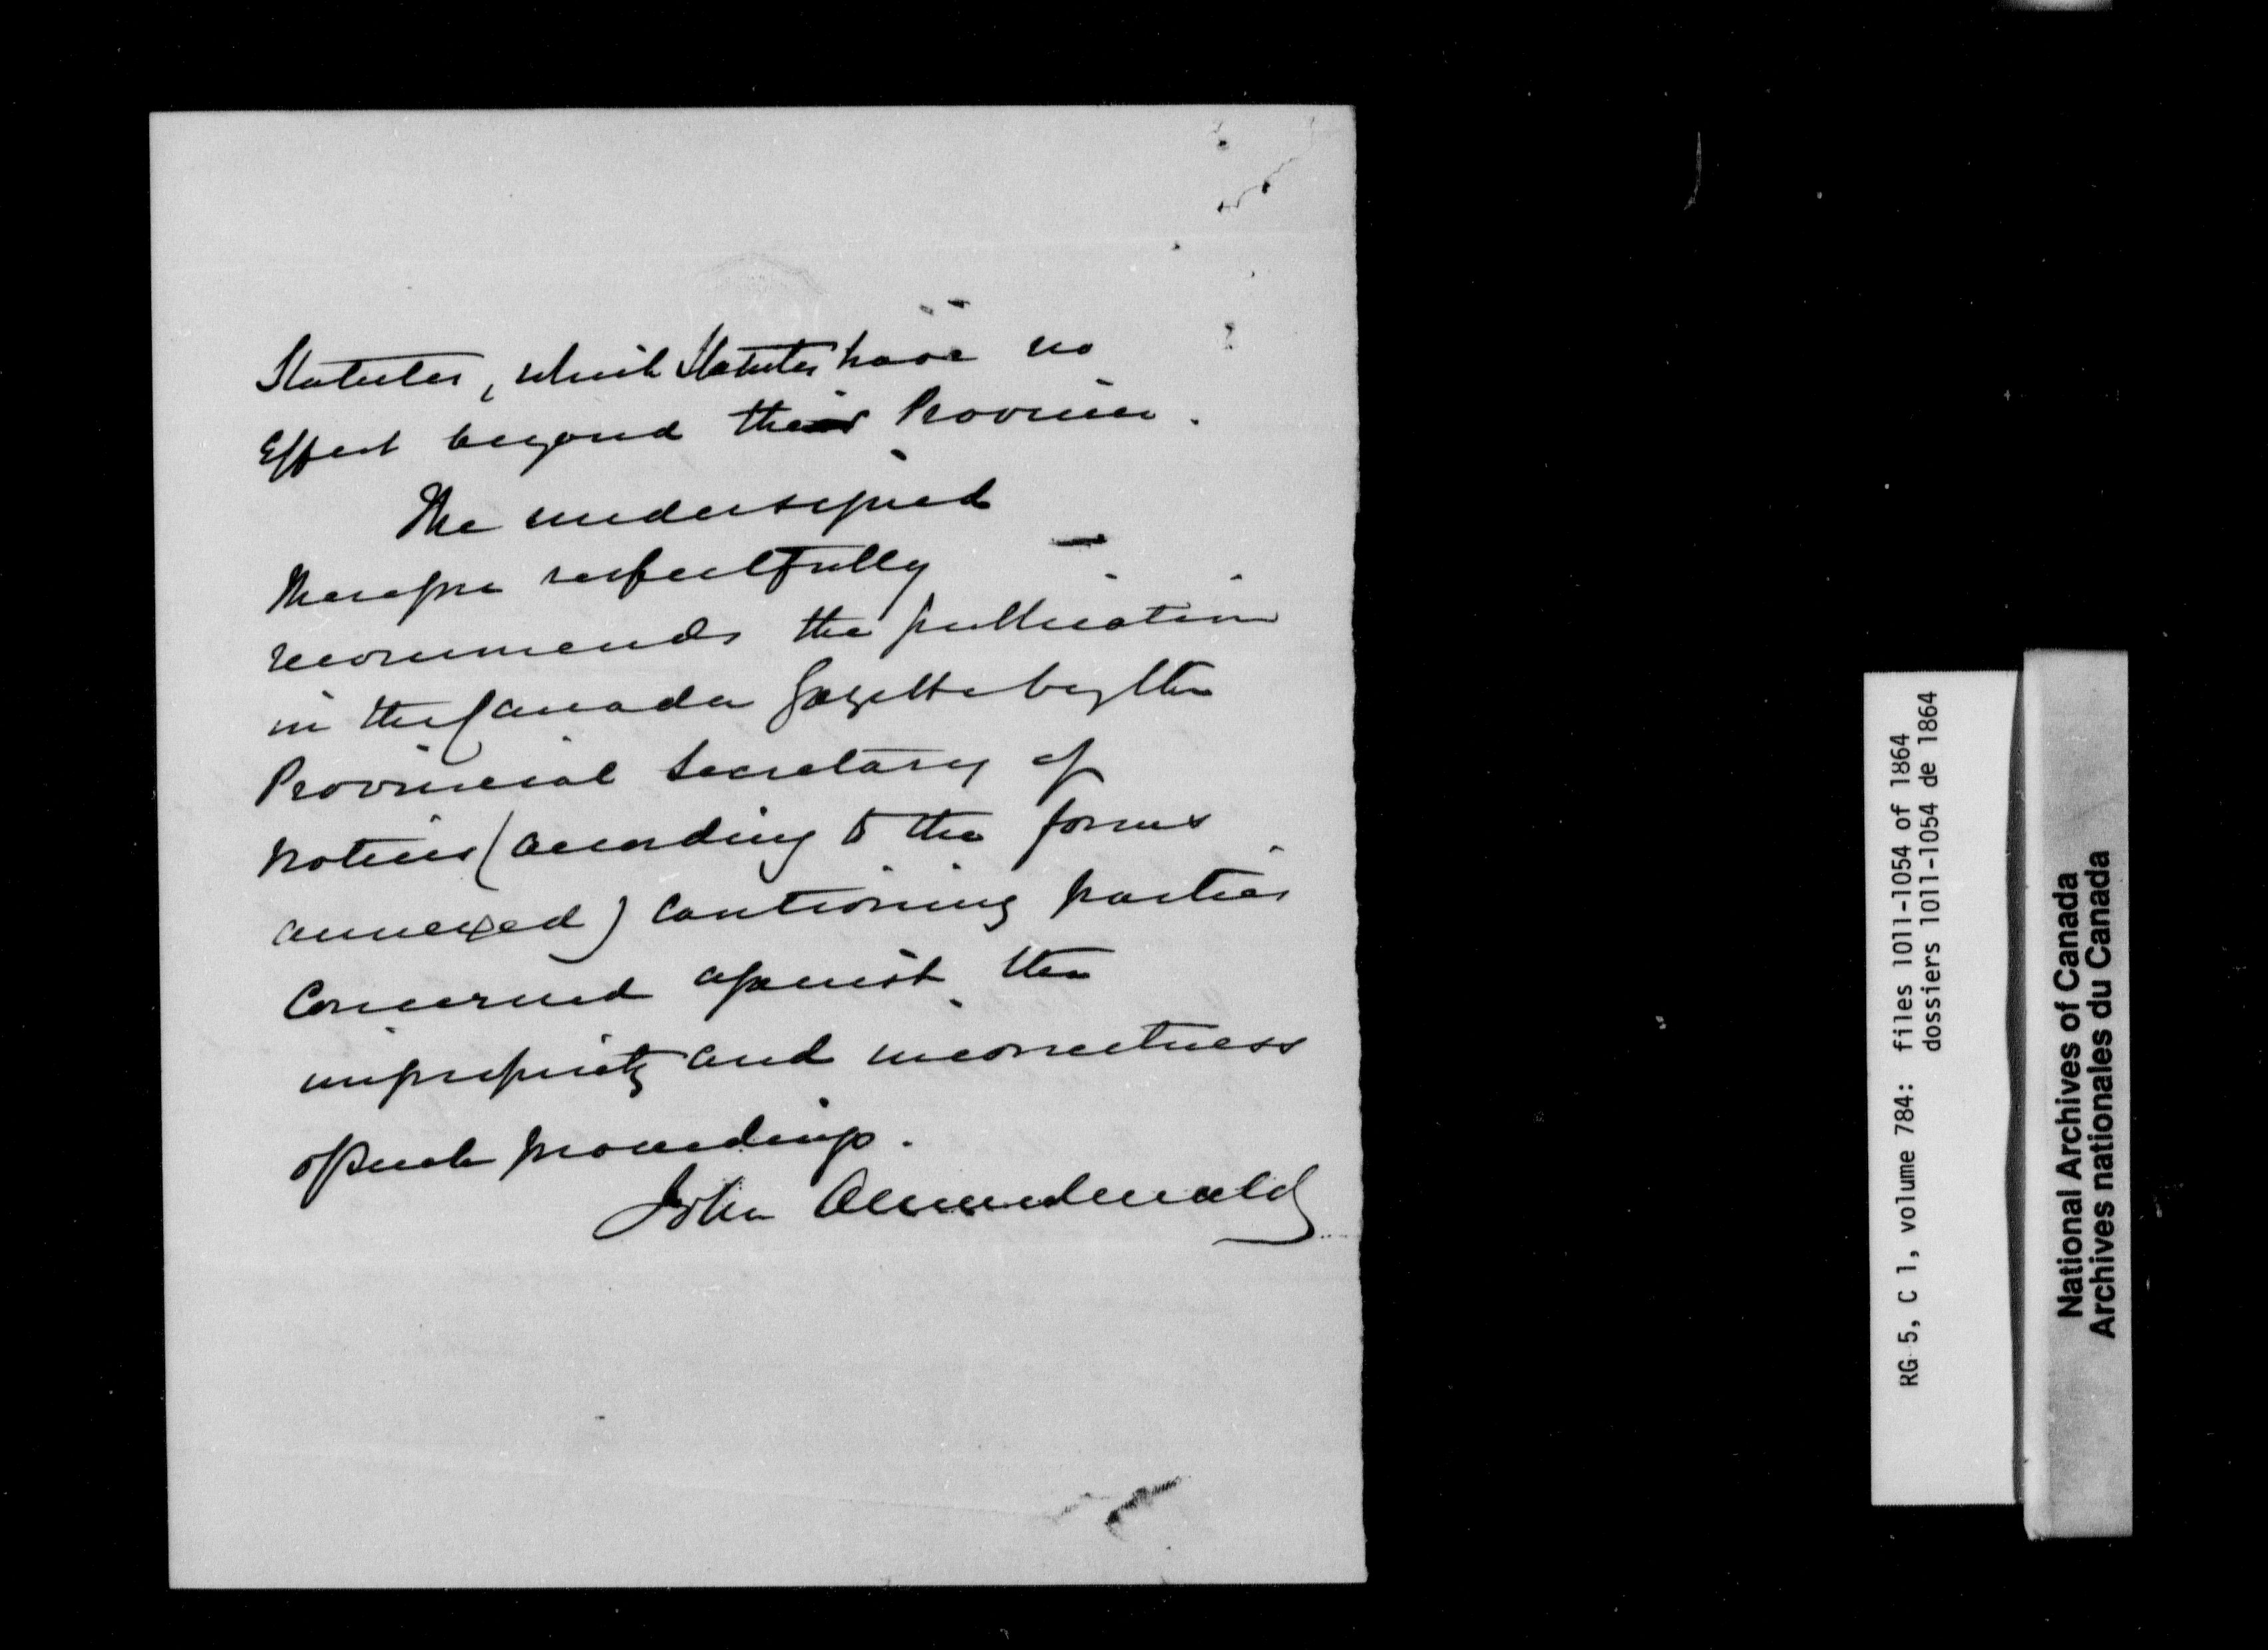 Statutes, which Statutes have no
Effect beyond their Province.
The undersigned
therefore respectfully
recommends the publication
in the Canada Gazette by the
Provincial Secretary of
Notices (according to the forms
annexed) cautioning parties
Concerned against the
impropriety and incorrectness
of such proceedings.
John A Macdonald
RG 5, C 1, volume 784: files 1011-1054 of 1864
dossiers 1011-1054 de 1864
National Archives of Canada
Archives nationales du Canada